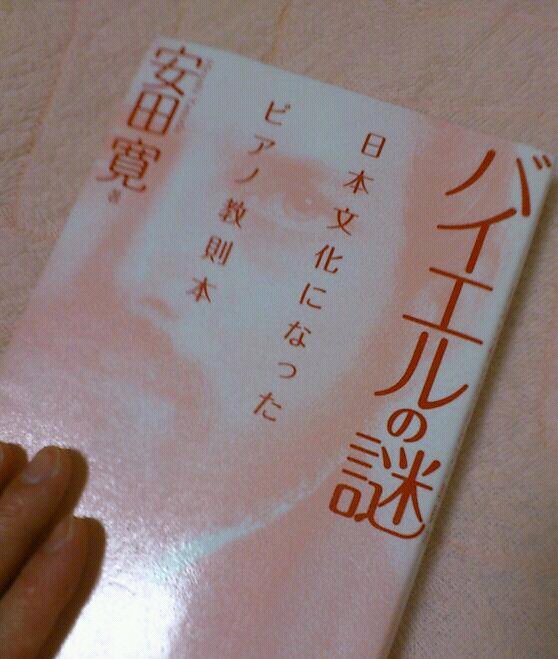 バイエルの謎
日本文化になった
ピアノ教則本
安田寛 著